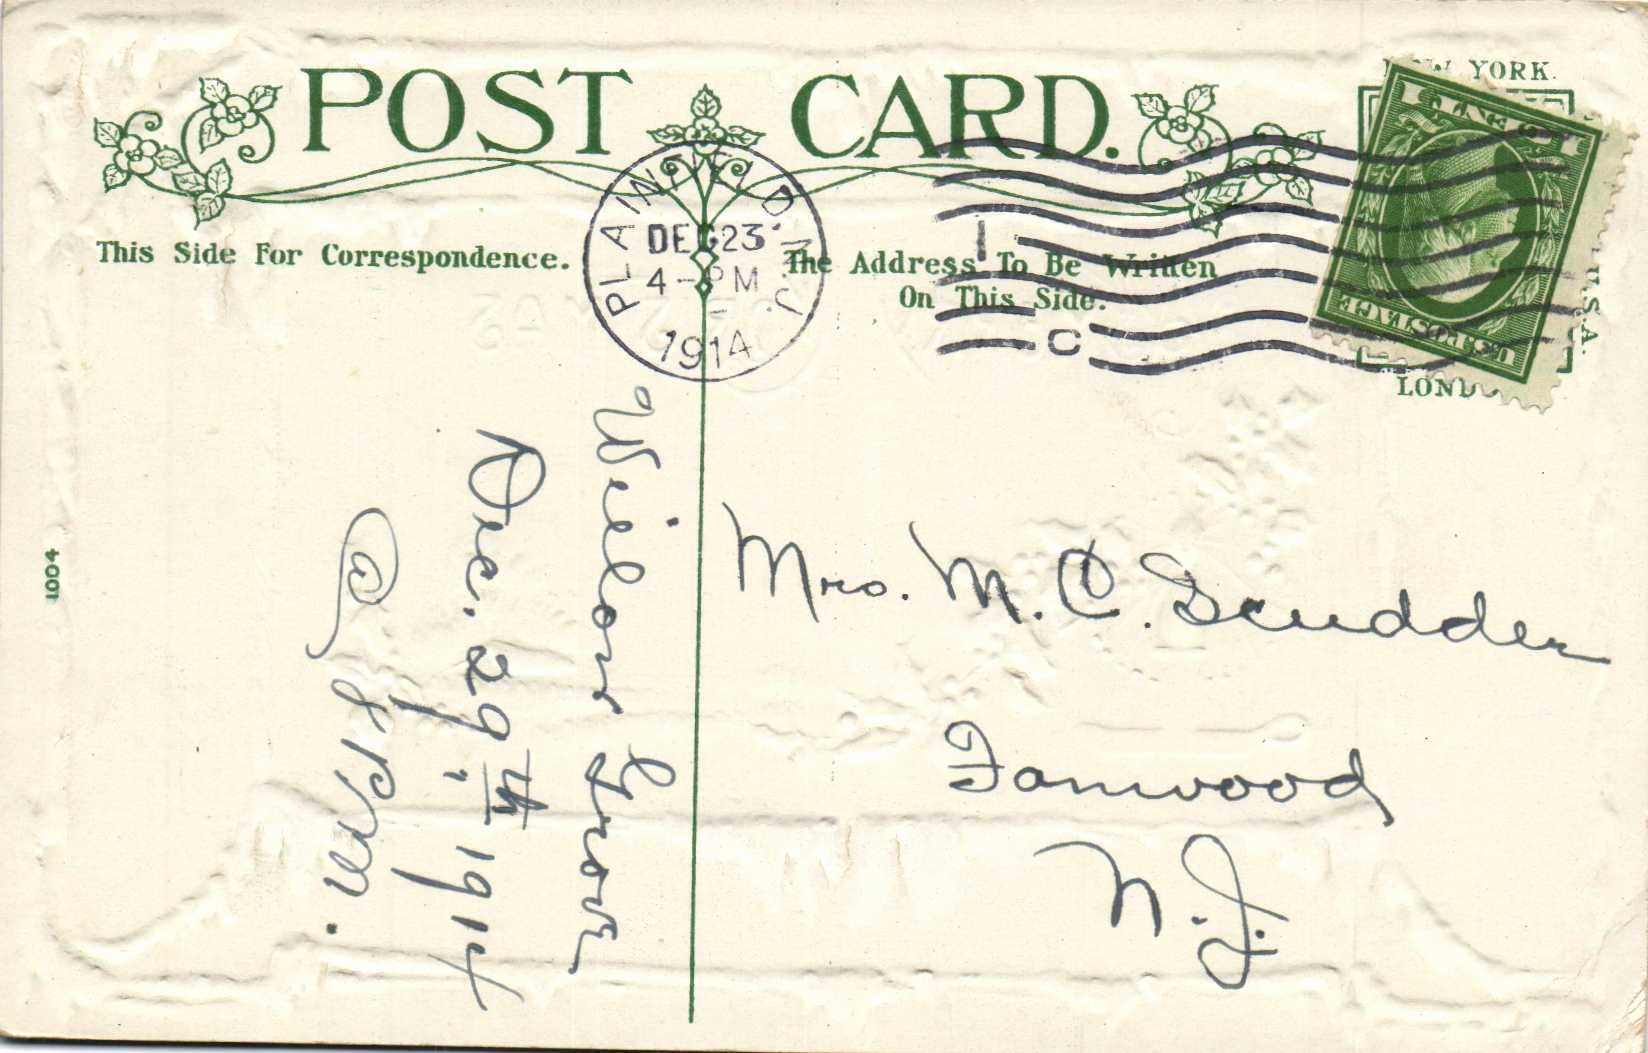 POST CARD.
This Side For Correspondence.
The Address To Be Written
On This Side.
PLAINFIELD, N.J.
DEC 23
4-PM
1914
1
C
NEW YORK.
U.S.A.
LONDON
U.S. POSTAGE
1 CENT 1
Wilson Grove
Dec. 29th, 1914
@ 8 P.M.
Mrs. M. C. Scudder
Fanwood
N.J.
1004